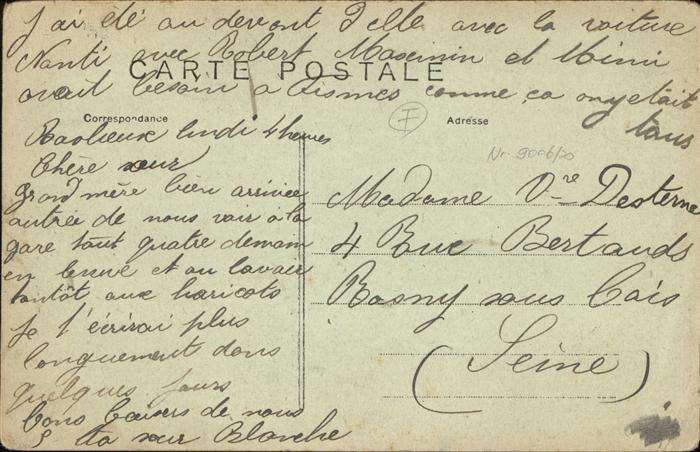 J'ai été au devant d'elle avec la voiture
Nanti avec Robert Maxemin et Mimi
avait besoin a Fismes comme ça on y était
tous
CARTE POSTALE
Correspondance
Adresse
lundi 4 heures
Chère sœur
grand mère bien arrivée
de nous voir a la
gare tout quatre demain
en and et au lavoir
tantôt aux haricots
Je t'écrirai plus
longuement dans
quelques jours
Bons baisers de nous
5 ta sœur Blanche
Madame Vve Desterne
4 Rue Bertauds
Rosny sous Bois
(Seine)